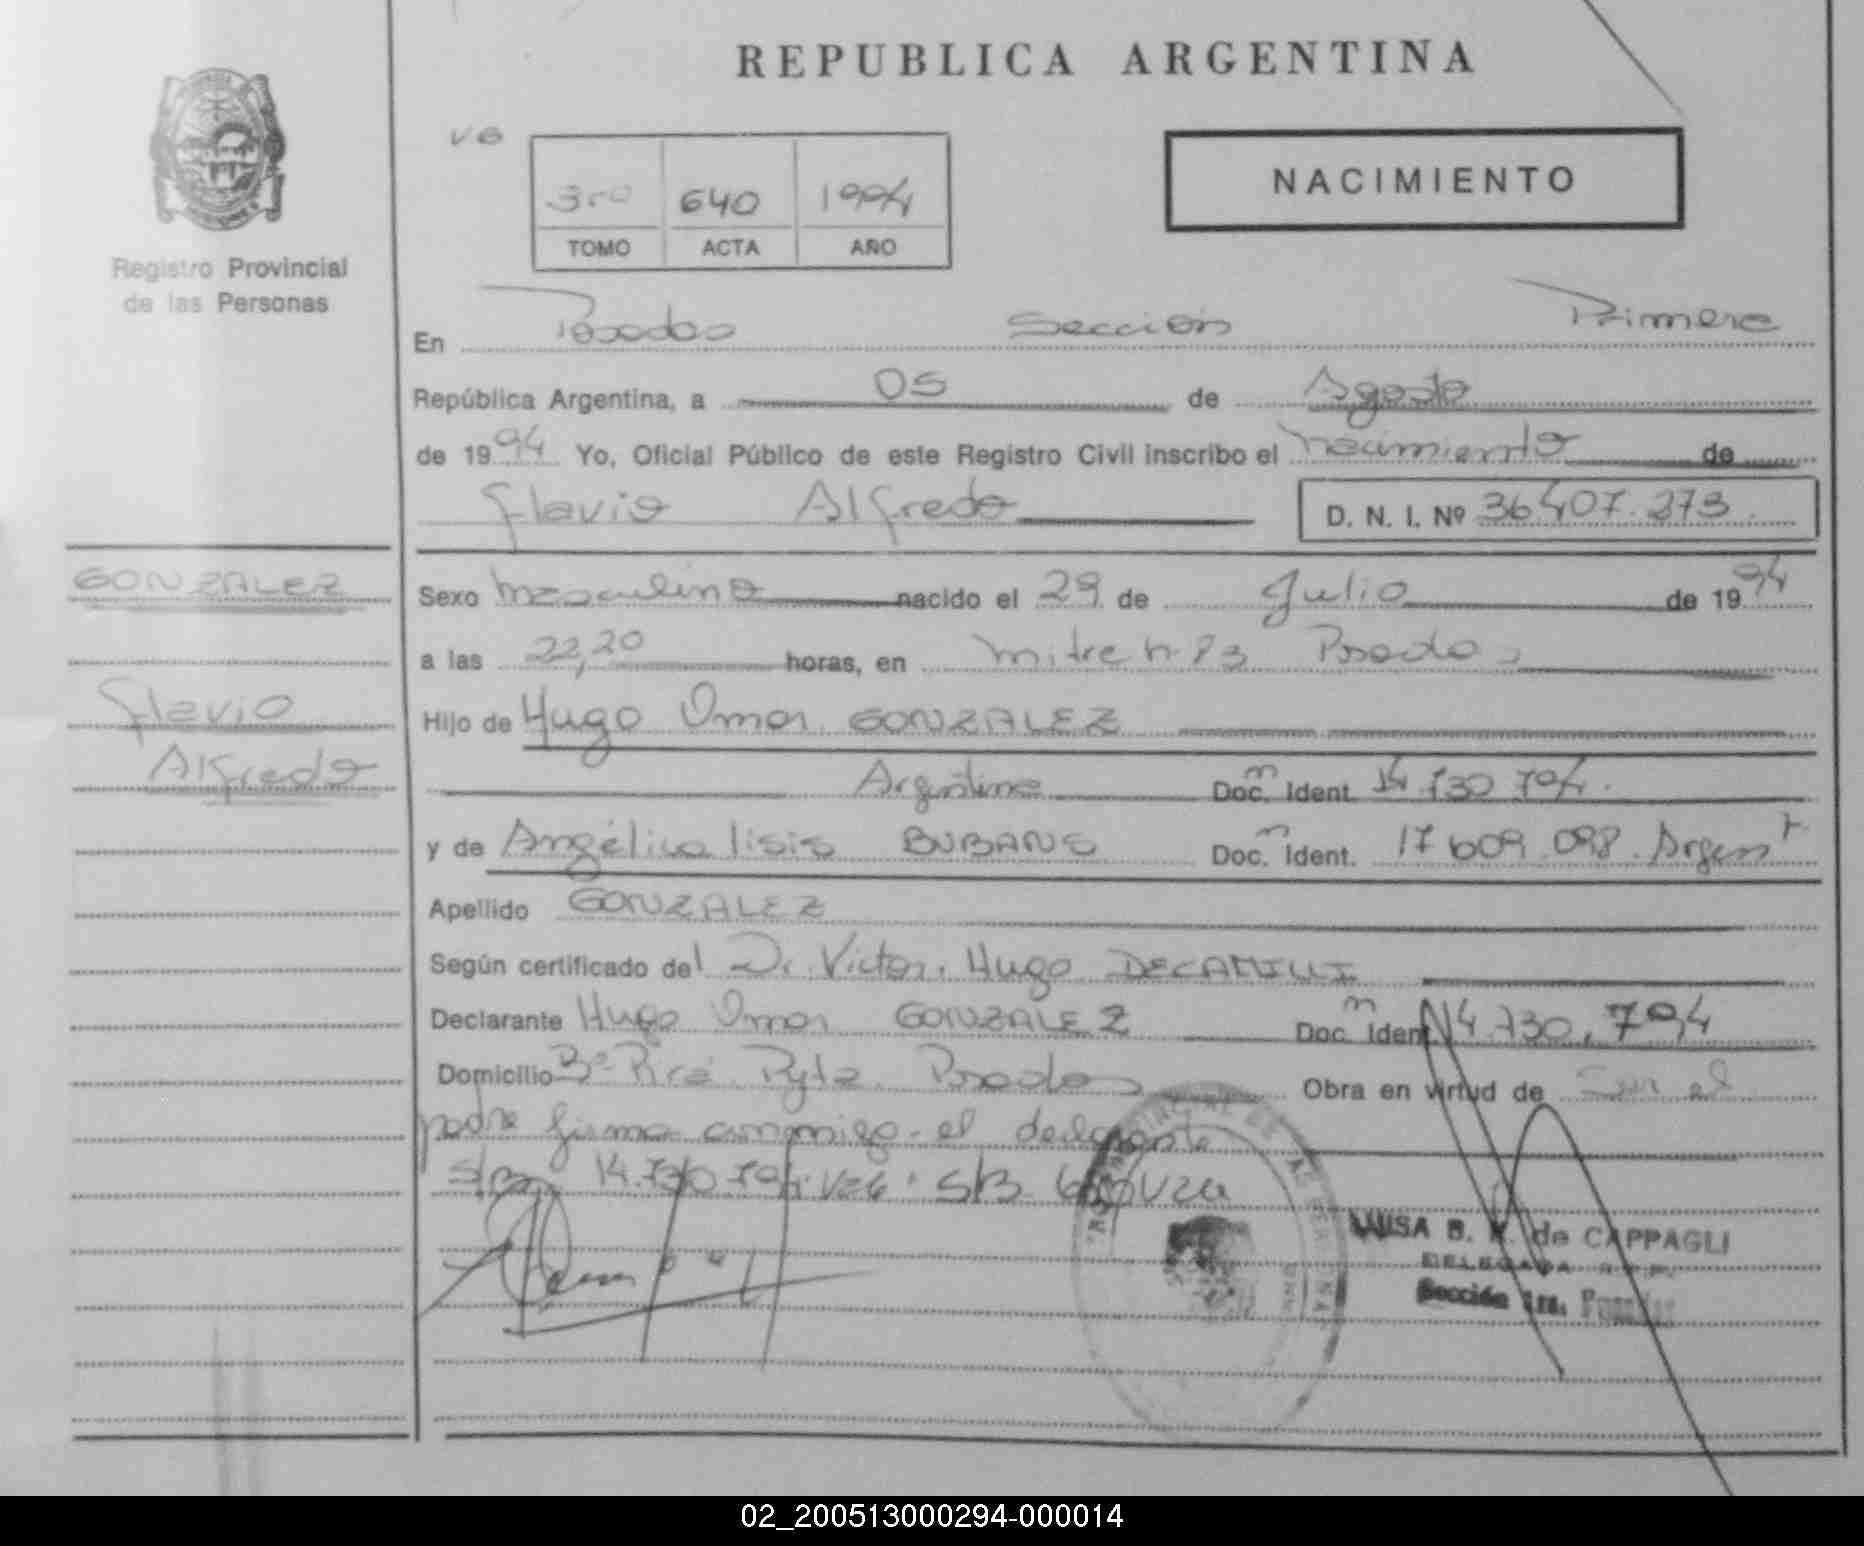 REPUBLICA ARGENTINA
VG
3ro 640 1994
TOMO ACTA AÑO
NACIMIENTO
Registro Provincial
de las Personas
En Posadas Sección Primera
República Argentina, a 05 de Agosto
de 1994 Yo, Oficial Público de este Registro Civil inscribo el nacimiento de
Flavio Alfredo D. N. I. Nº 36407.273
GONZALEZ
Flavio
Alfredo
Sexo masculino nacido el 29 de Julio de 1994
a las 22,20 horas, en mitre n. Posadas
Hijo de Hugo Omar GONZALEZ
Argentino Doc. m Ident. 14 730 794.
y de Angélica Isis BUBANS Doc. m Ident. 17 609 098. Argent
Apellido GONZALEZ
Según certificado del Dr. Victor Hugo DECAMILLI
Declarante Hugo Omar GONZALEZ Doc. m Ident. 14.730.794
Domicilio Bº Pyta Posadas Obra en virtud de Ser el
padre firma conmigo el declarante
S/B 14.730.794. S/B
LUISA B. de CAPPAGLI
DELEGADA
Sección 1ra. Posadas
02_200513000294-000014